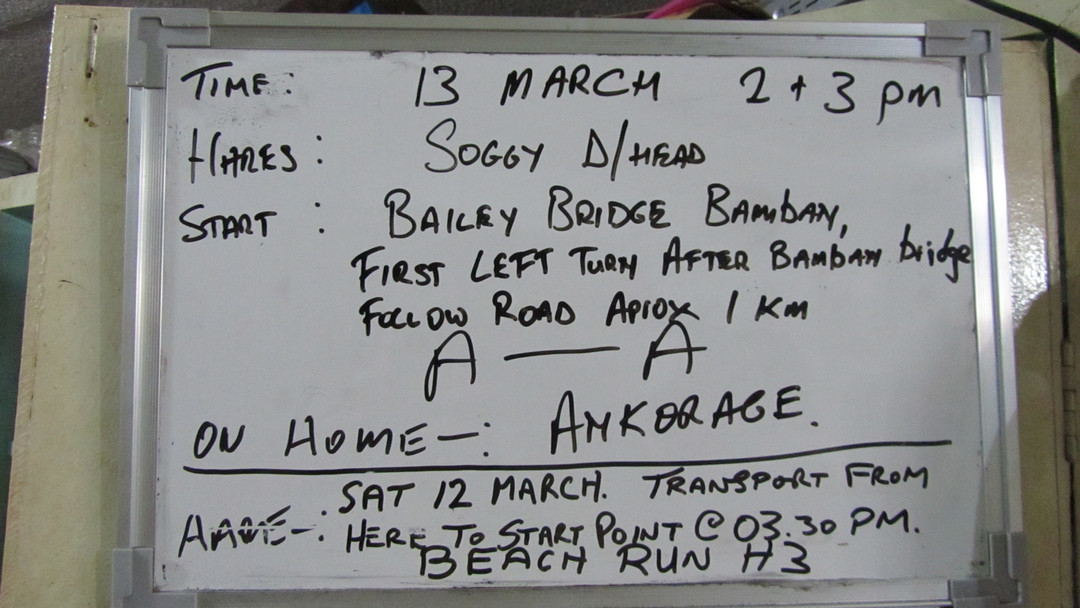 TIME: 13 MARCH 2 + 3 pm
HARES: SOGGY D/HEAD
START: BAILEY BRIDGE BAMBAN,
FIRST LEFT TURN AFTER BAMBAN bridge
FOLLOW ROAD APROX 1 KM
A — A
ON HOME—: ANKORAGE.
SAT 12 MARCH. TRANSPORT FROM
HERE TO START POINT @ 03.30 PM.
BEACH RUN H3